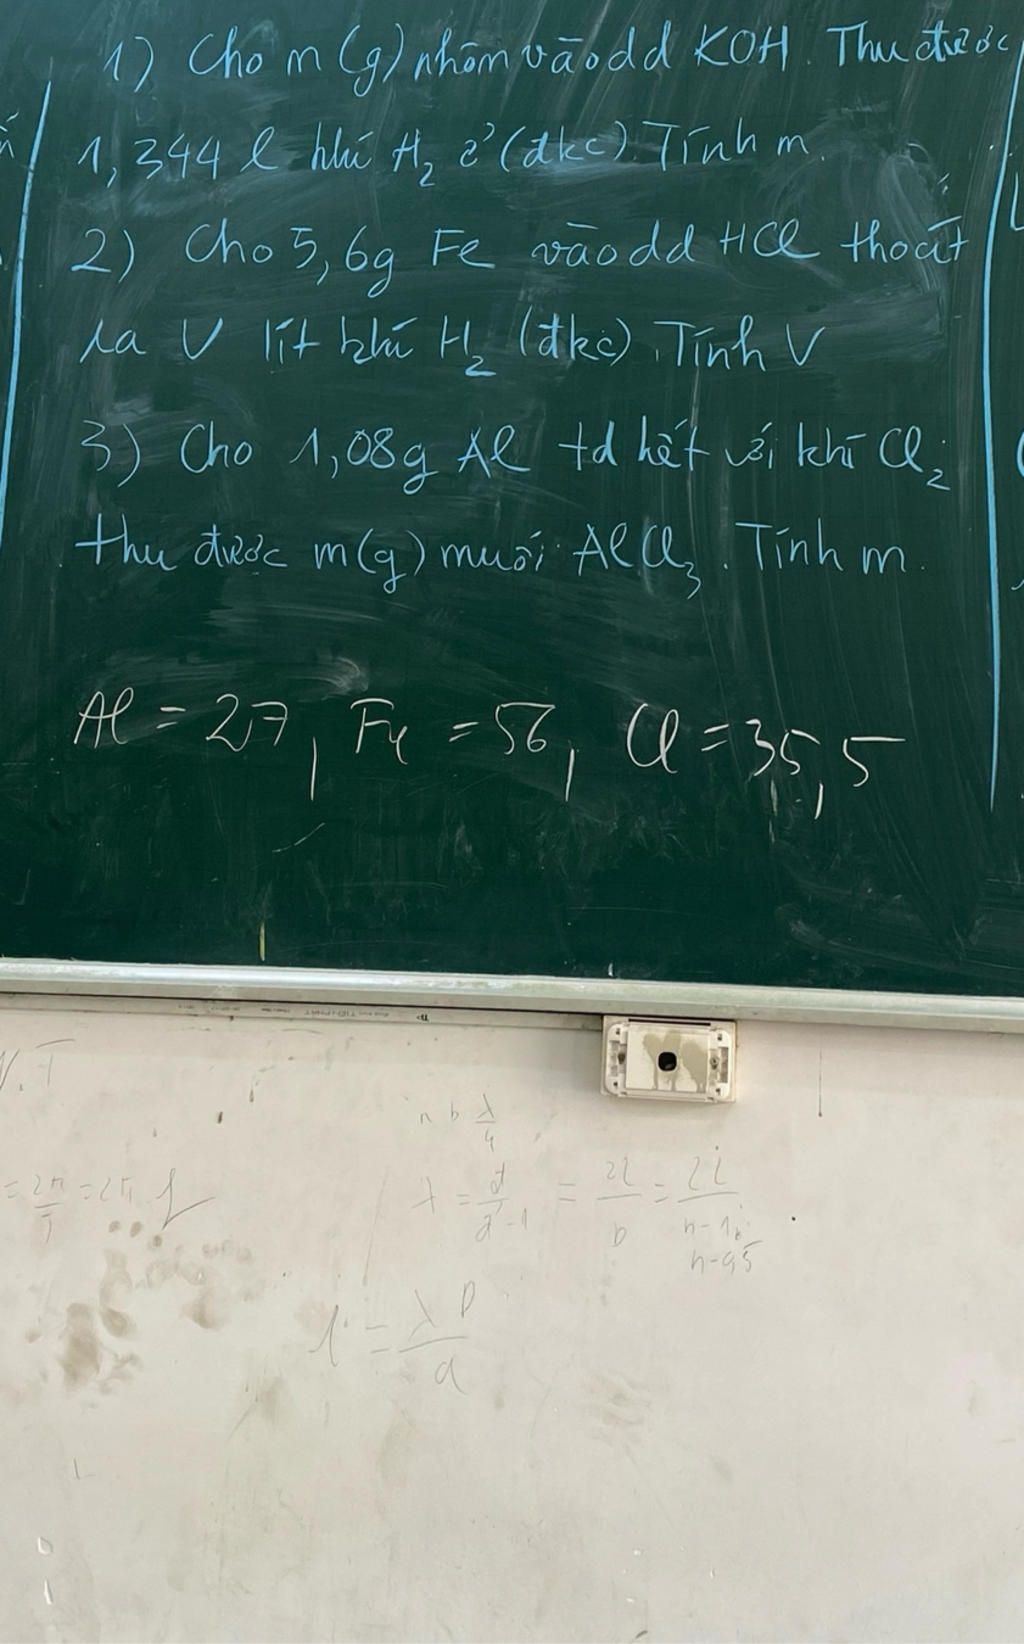 1) Cho m (g) nhôm vào dd KOH. Thu được
1,344 l khí H2 ở (đkc). Tính m.
2) Cho 5,6g Fe vào dd HCl thoát
ra V lít khí H2 (đkc). Tính V
3) Cho 1,08g Al td hết với khí Cl2
thu được m(g) muối AlCl3. Tính m.
Al = 27, Fe = 56, Cl = 35,5
i = λD/a